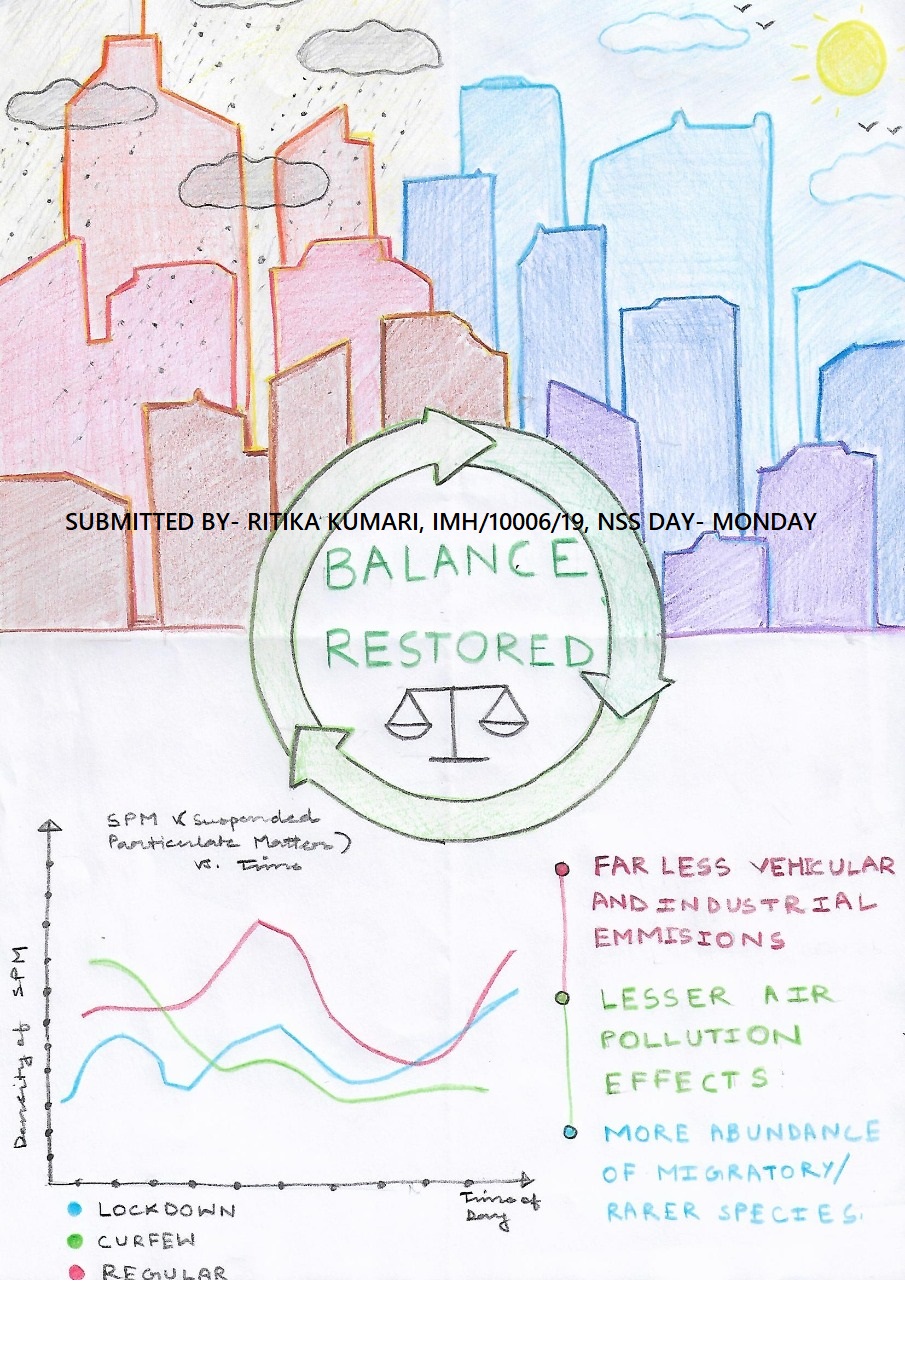 SUBMITTED BY- RITIKA KUMARI, IMH/10006/19, NSS DAY- MONDAY
BALANCE
RESTORED
SPM (Suspended
Particulate Matters)
vs. Time
Density of SPM
Time of
Day
LOCKDOWN
CURFEW
REGULAR
FAR LESS VEHICULAR
AND INDUSTRIAL
EMMISIONS
LESSER AIR
POLLUTION
EFFECTS
MORE ABUNDANCE
OF MIGRATORY/
RARER SPECIES.